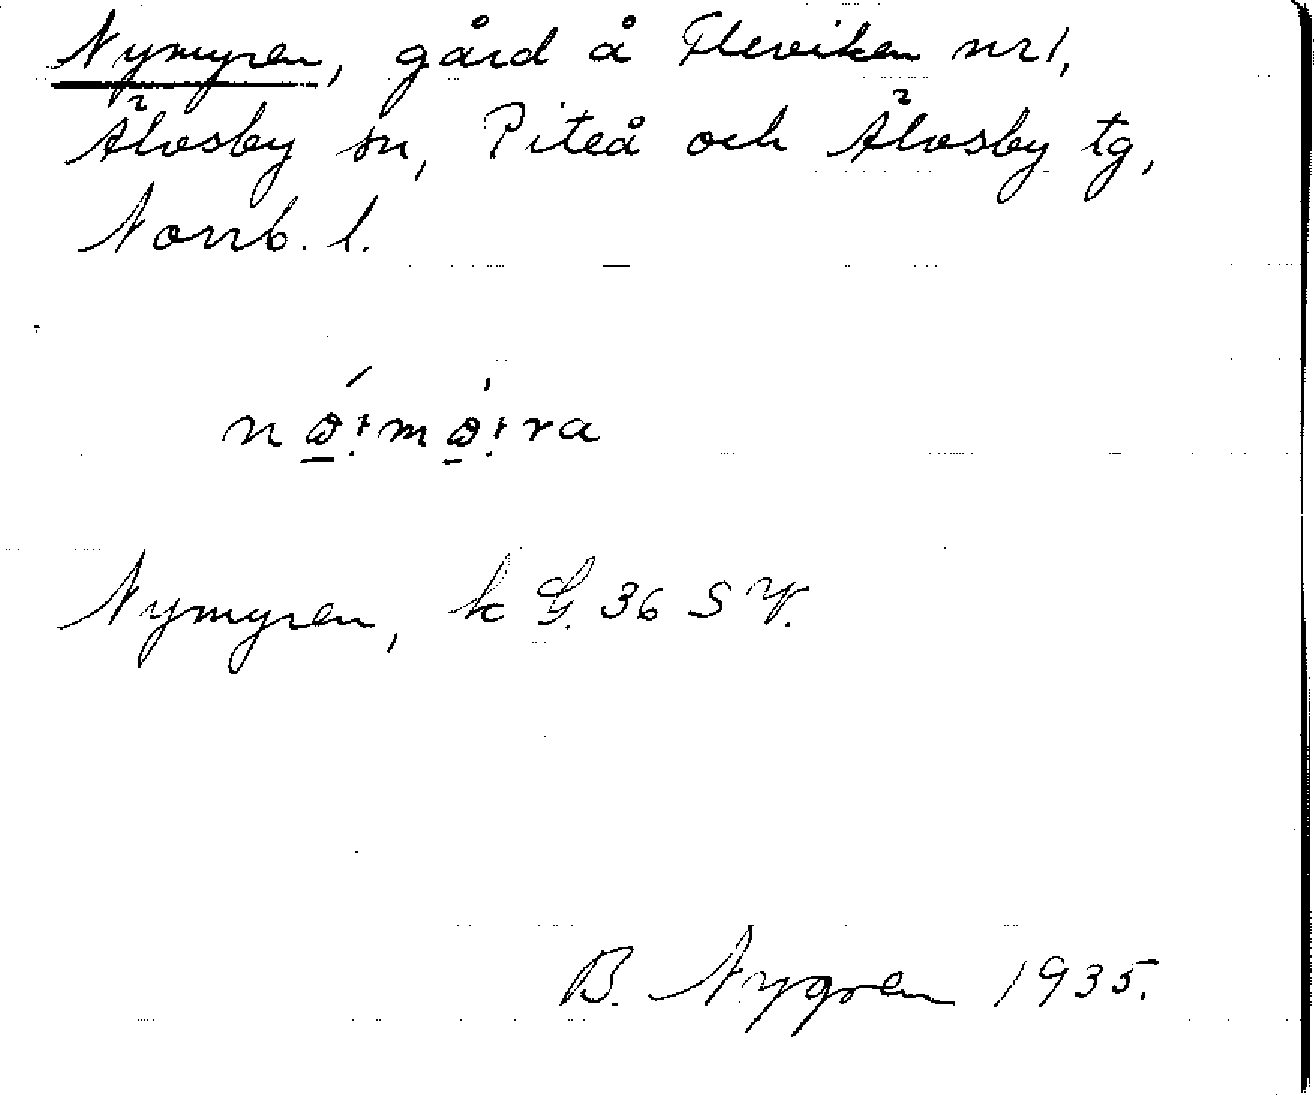 Nymyren, gård å Fleviken nr 1,
Älvsby sn, Piteå och Älvsby tg,
Norrb. l.
Nymyren, k G. 36 S V.
B. Nygren 1935.